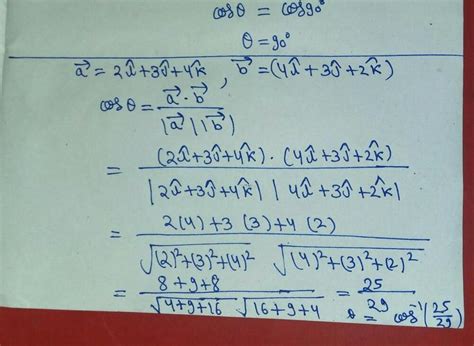 cosθ = cos90°
θ = 90°
a⃗ = 2î+3ĵ+4k̂ , b⃗ = (4î+3ĵ+2k̂)
cosθ = a⃗ · b⃗ / |a⃗| |b⃗|
= (2î+3ĵ+4k̂) · (4î+3ĵ+2k̂) / |2î+3ĵ+4k̂| |4î+3ĵ+2k̂|
= 2(4)+3(3)+4(2) / √(2)²+(3)²+(4)² √(4)²+(3)²+(2)²
= 8+9+8 / √4+9+16 √16+9+4 = 25/29
θ = cos⁻¹(25/29)